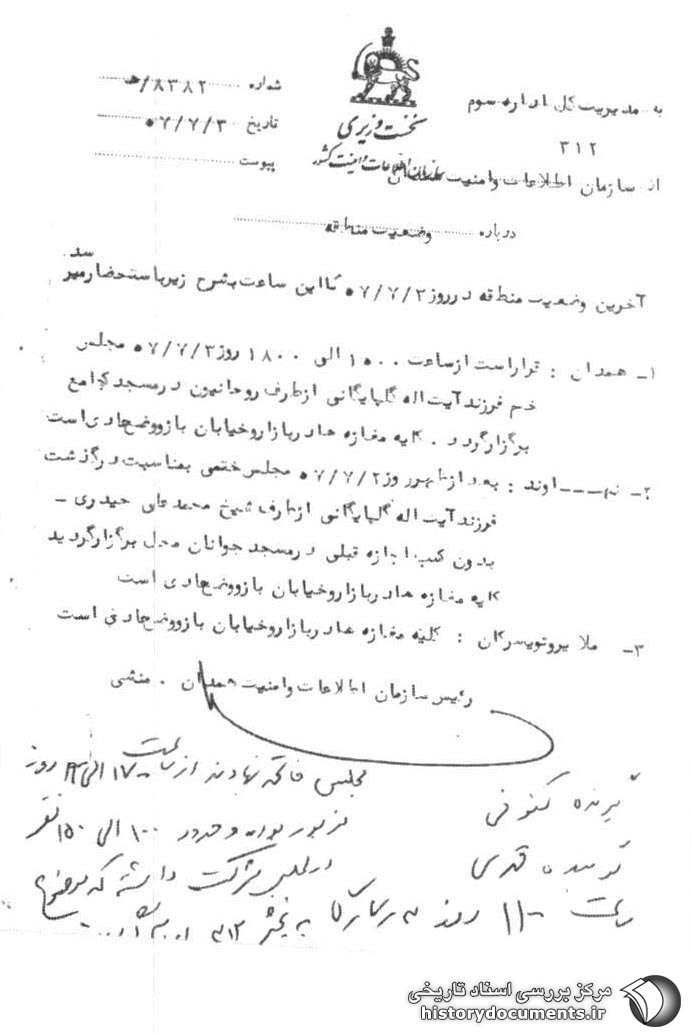 به مدیریت کل اداره سوم
۳۱۲
از سازمان اطلاعات و امنیت همدان
نخست وزیری
سازمان اطلاعات و امنیت کشور
شماره ۸۳۸۲/ه
تاریخ ۵۷/۷/۳
پیوست
درباره وضعیت منطقه
آخرین وضعیت منطقه در روز ۵۷/۷/۳ تا این ساعت بشرح زیر باستحضار میرسد
۱- همدان : قرار است از ساعت ۱۵۰۰ الی ۱۸۰۰ روز ۵۷/۷/۳ مجلس
ختم فرزند آیت اله گلپایگانی از طرف روحانیون در مسجد جامع
برگزار گردد . کلیه مغازه ها در بازار و خیابان باز و وضع عادی است
۲- نهـــاوند : بعد از ظهر روز ۵۷/۷/۲ مجلس ختمی بمناسبت درگذشت
فرزند آیت اله گلپایگانی از طرف شیخ محمد علی حیدری -
بدون کسب اجازه قبلی در مسجد جوانان محل برگزار گردید
کلیه مغازه ها در بازار و خیابان باز و وضع عادی است
۳- ملایر و تویسرکان : کلیه مغازه ها در بازار و خیابان باز و وضع عادی است
رئیس سازمان اطلاعات و امنیت همدان . منشی
گیرنده کنوفی
گوینده قدسی
ساعت ۱۱۰۰ روز
مجلس فاتحه نهاوند از ساعت ۱۷۰۰ الی روز
مزبور بوده و حدود ۱۰۰ الی ۱۵۰ نفر
در مجلس شرکت داشته که موضوع
به بخش ۳۱۲
مرکز بررسی اسناد تاریخی
historydocuments.ir